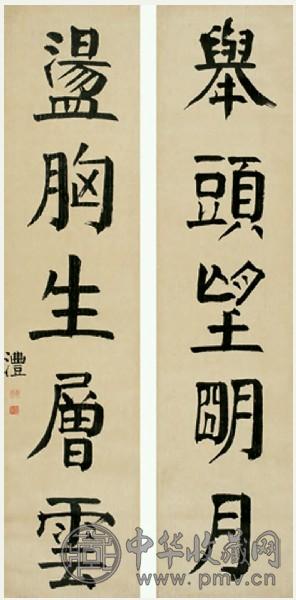 舉頭望明月
盪胸生層雲
澧
中华收藏网
www.pmv.cn